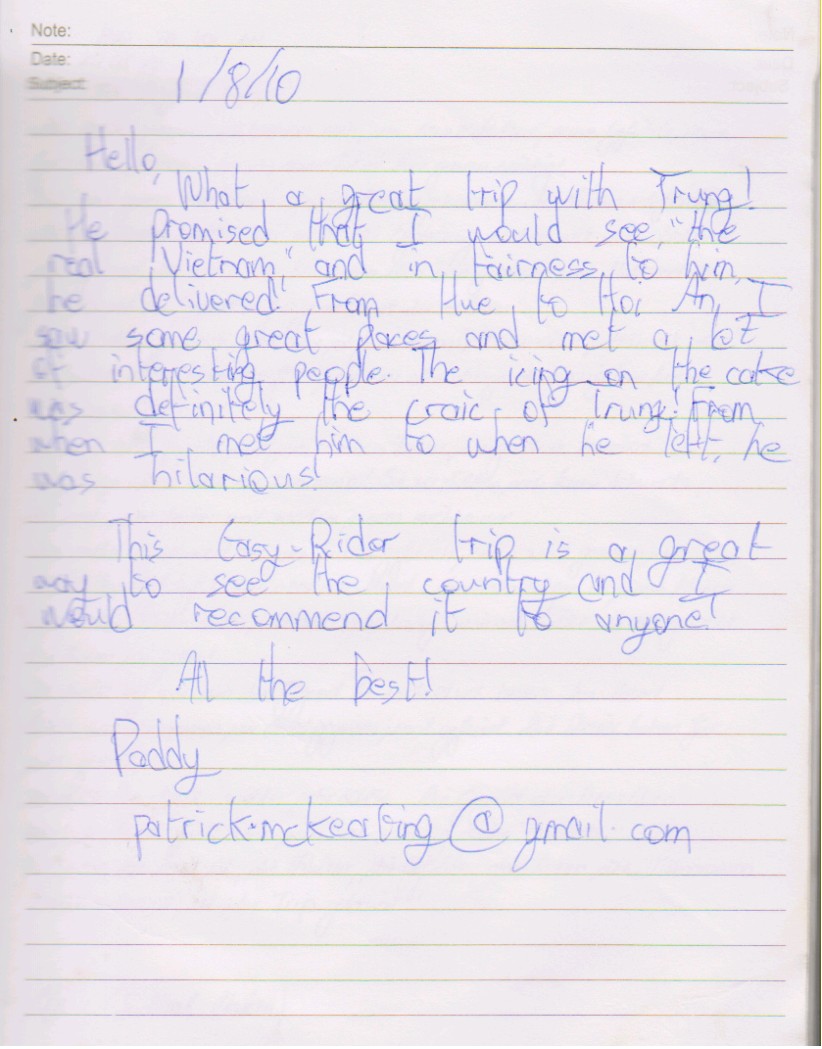 Note:
Date:
Subject:
1/8/10
Hello,
What a great trip with Trung!
He promised that I would see "the
real Vietnam," and in fairness to him,
he delivered! From Hue to Hoi An, I
saw some great places and met a lot
of interesting people. The icing on the cake
was definitely the craic of Trung! From
when I met him to when he left, he
was hilarious!
This Easy-Rider trip is a great
way to see the country and I
would recommend it to anyone!
All the best!
Paddy
patrick.mckeating@gmail.com